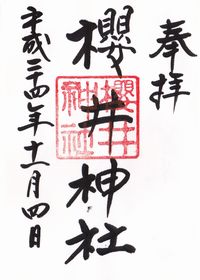 奉拝
櫻井神社
櫻井神社
平成二十四年十一月四日